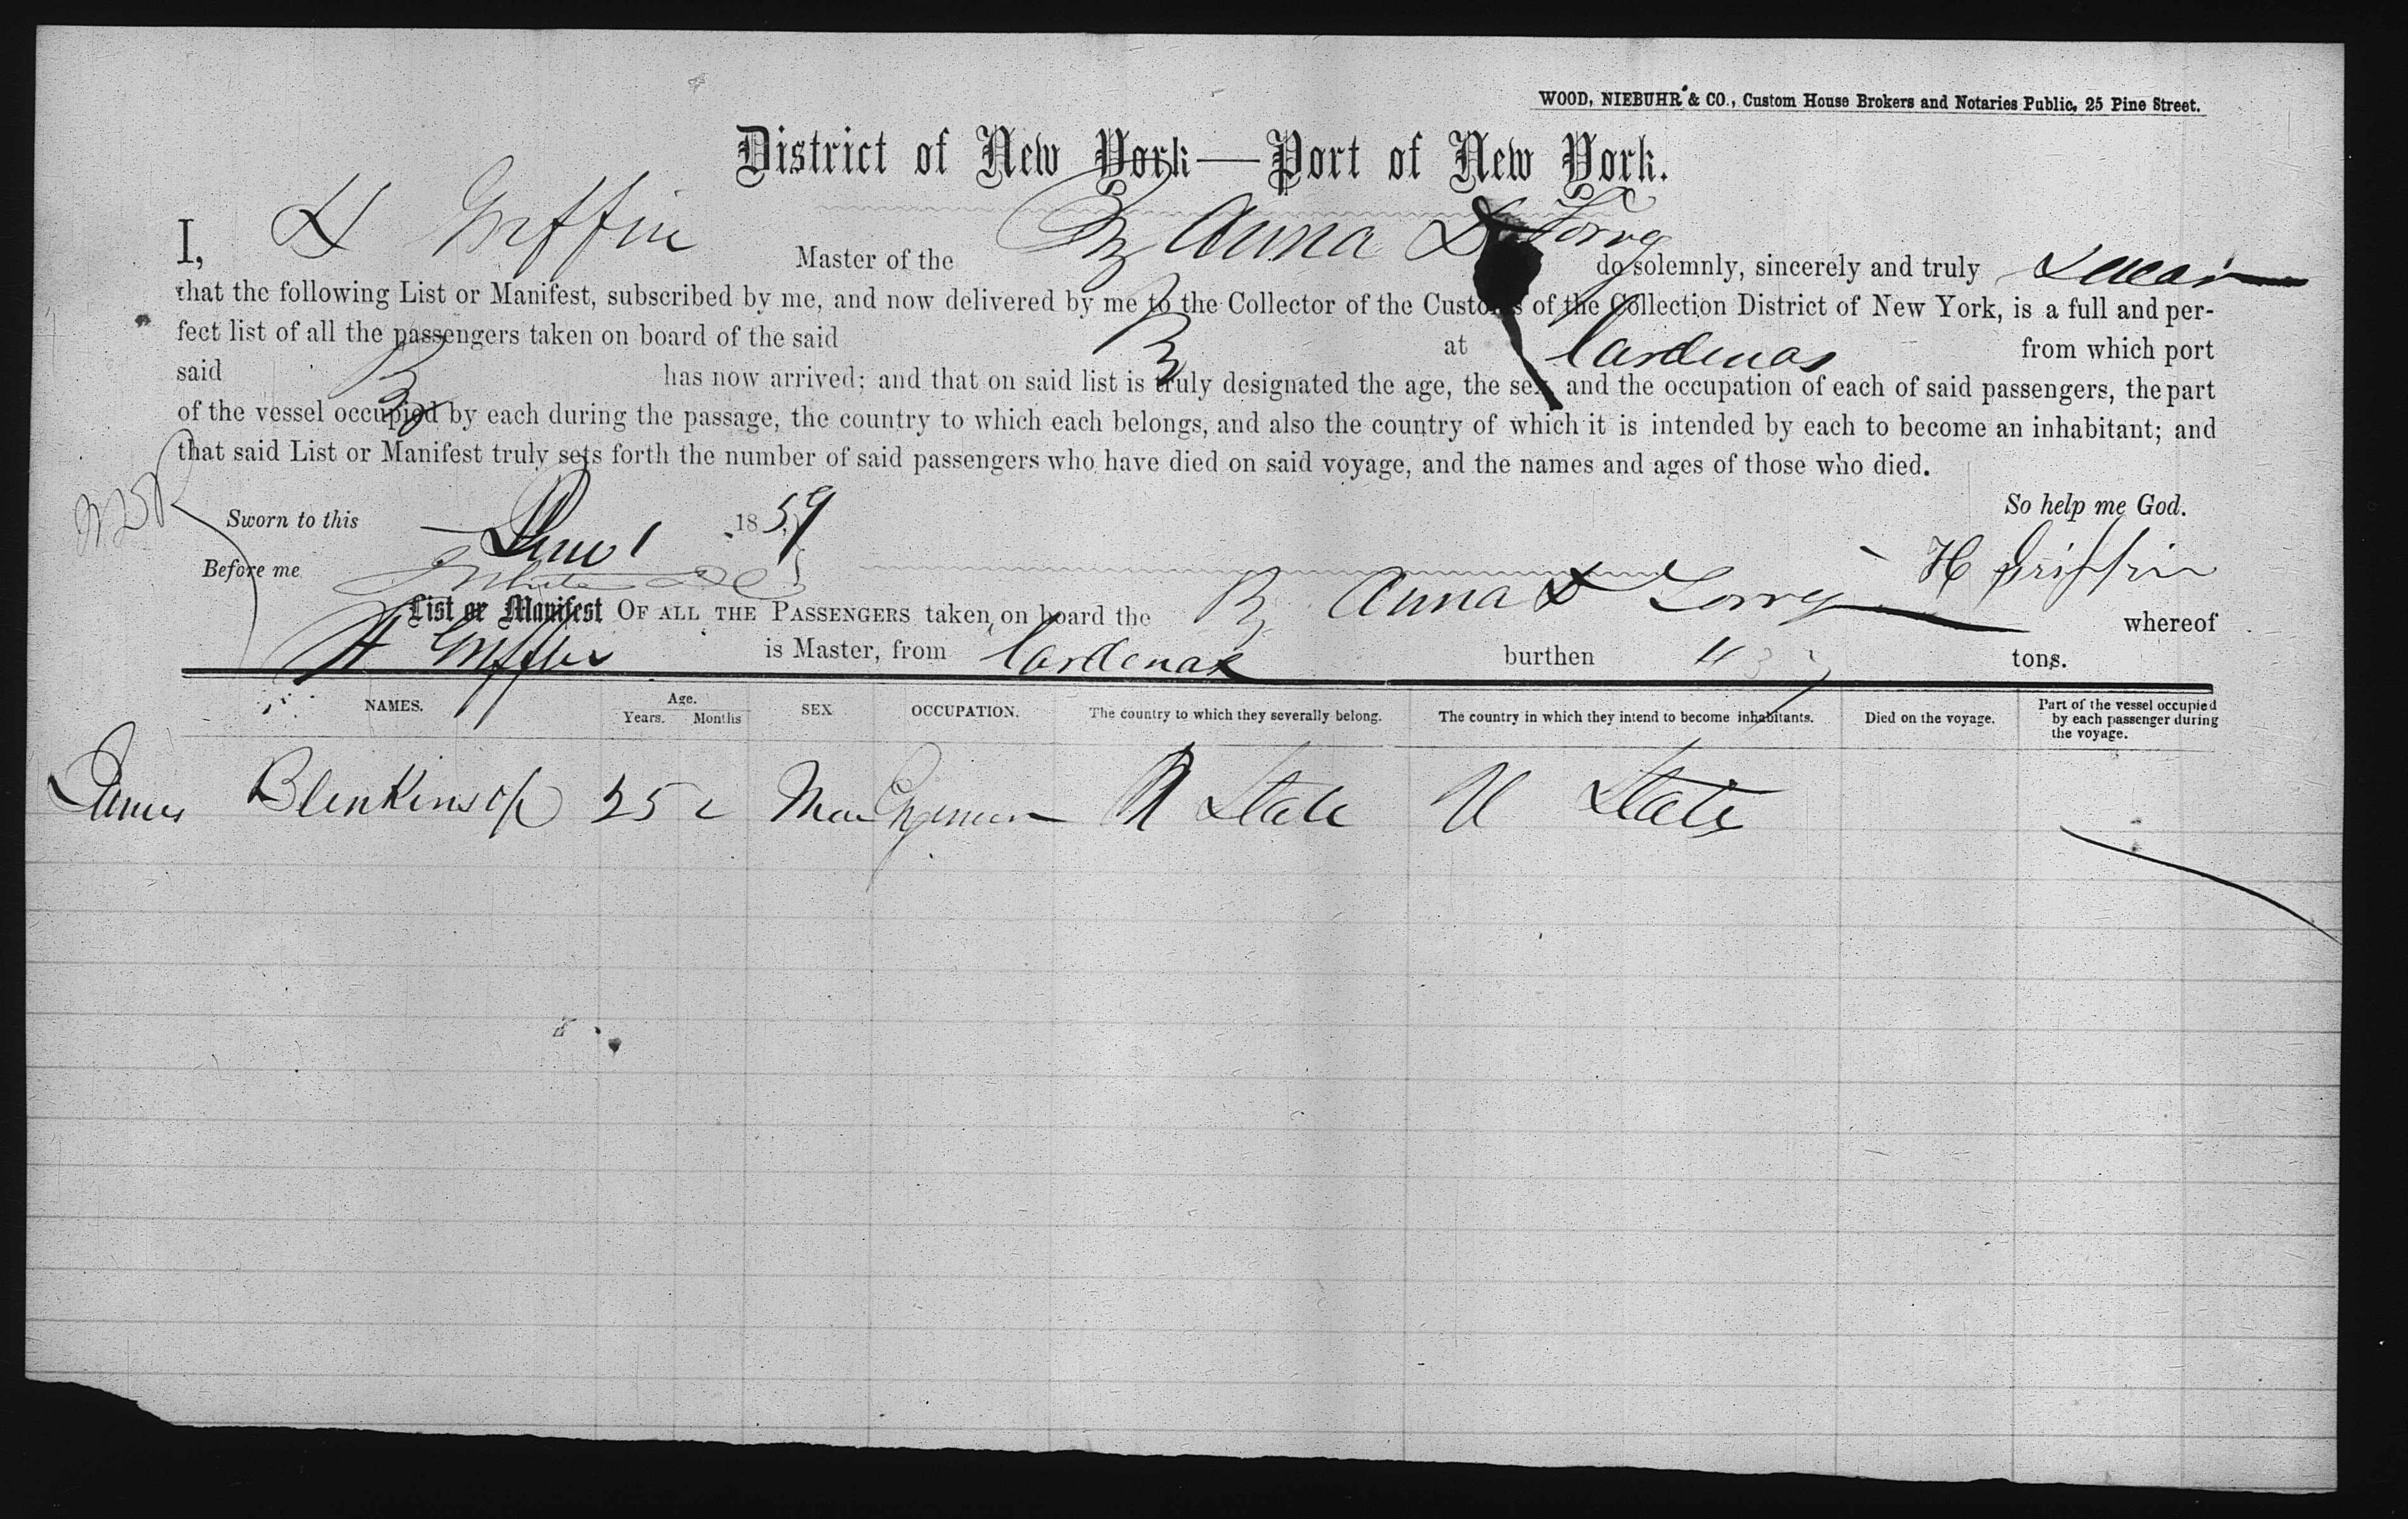 WOOD, NIEBUHR & CO., Custom House Brokers and Notaries Public, 25 Pine Street.
District of New York—Port of New York.
I, H Griffin Master of the Bg Anna D Torrey do solemnly, sincerely and truly swear
that the following List or Manifest, subscribed by me, and now delivered by me to the Collector of the Customs of the Collection District of New York, is a full and per-
fect list of all the passengers taken on board of the said Bg at Cardenas from which port
said Bg has now arrived; and that on said list is truly designated the age, the sex, and the occupation of each of said passengers, the part
of the vessel occupied by each during the passage, the country to which each belongs, and also the country of which it is intended by each to become an inhabitant; and
that said List or Manifest truly sets forth the number of said passengers who have died on said voyage, and the names and ages of those who died.
So help me God.
Sworn to this 1 1859
Before me H Griffin
List or Manifest OF ALL THE PASSENGERS taken on board the Bg Anna D Torrey whereof
H Griffin is Master, from Cardenas burthen tons.
NAMES. Age. Years. Months SEX OCCUPATION. The country to which they severally belong. The country in which they intend to become inhabitants. Died on the voyage. Part of the vessel occupied by each passenger during the voyage.
James Blenkinsop 25 Engineer U State U States